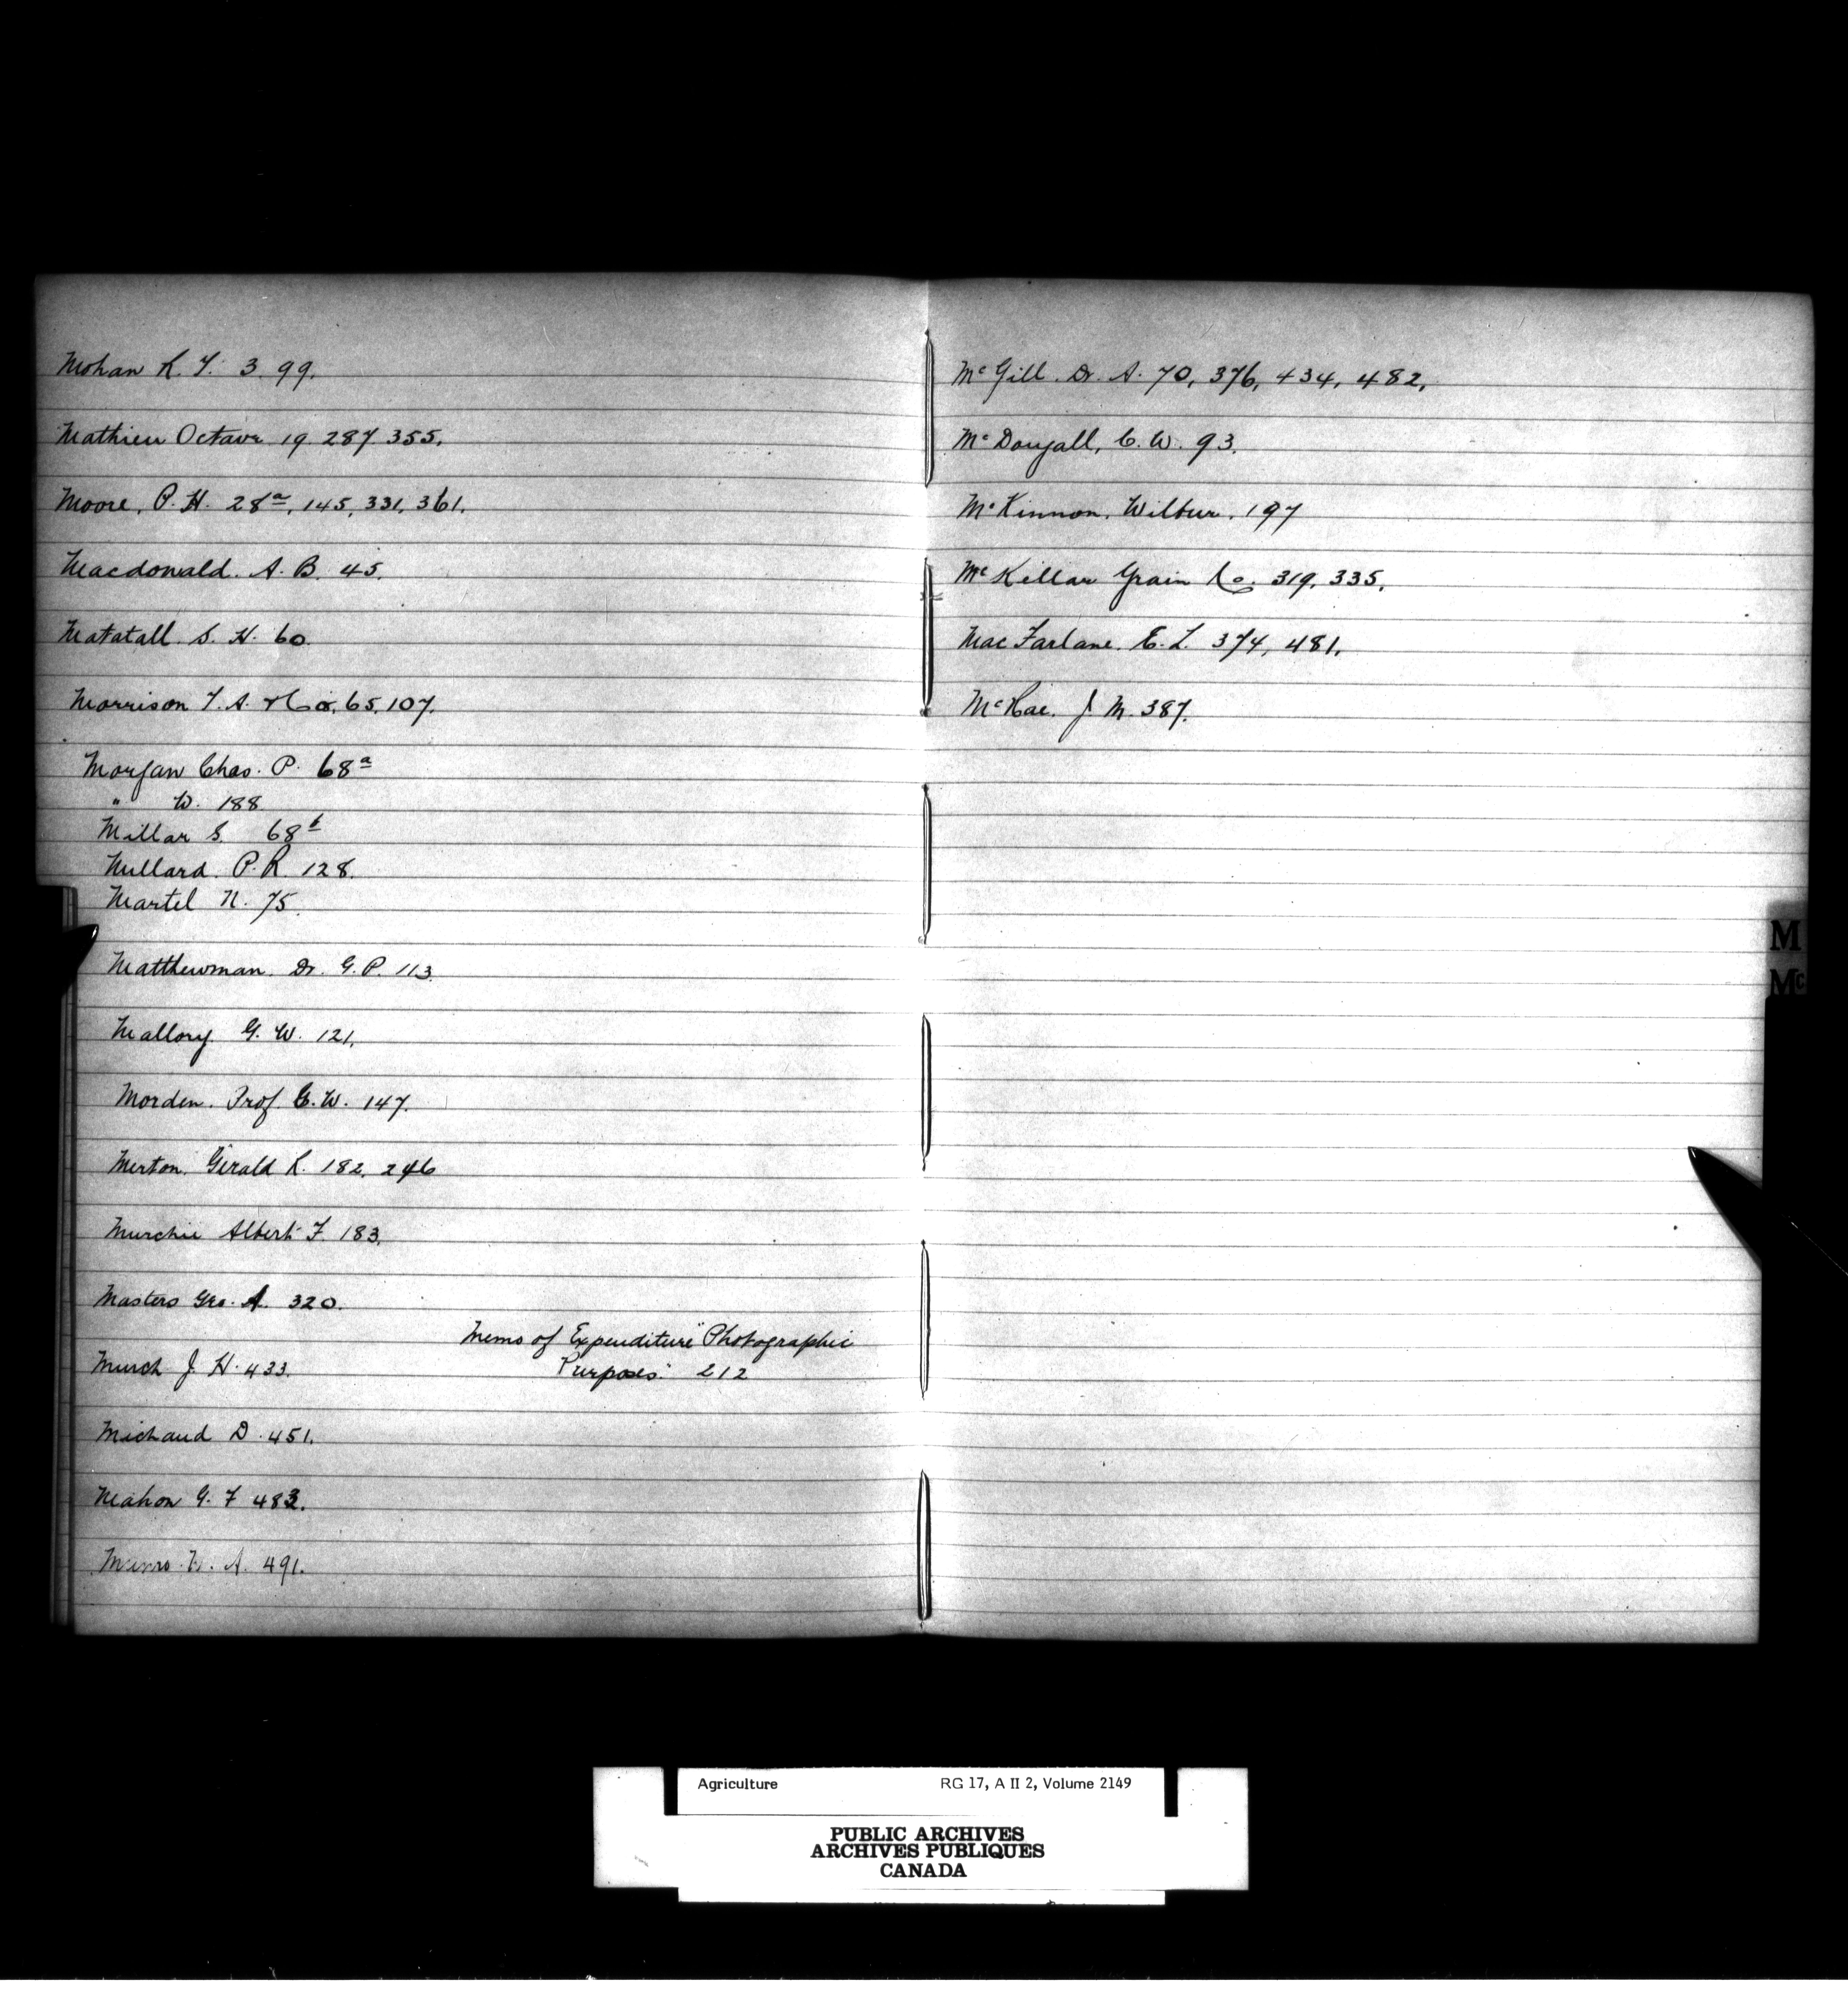 Mohan R. T. 3. 99.
Mathieu Octave 19. 287 355.
Moore, P. H. 28a, 145, 331, 361.
Macdonald. A. B. 45.
Matatall. S. H. 60.
Morrison T. A. & Co. 65, 107.
Morgan Chas. P. 68a
" W. 188
Millar S. 68b
Millard. P. R. 128.
Martel N. 75.
Matthewman. Dr. G. P. 113.
Mallory. G. W. 121.
Morden. Prof. G. W. 147.
Merton. Gerald R. 182, 246
Murchie Albert F. 183.
Masters Geo. A. 320.
Memo of Expenditure "Photographic
Purposes." 212
Murch J. H. 433.
Michaud D. 451.
Mahon G. F 483.
Munro W. A. 491.
McGill. Dr. A. 70, 376, 434, 482.
McDougall, C. W. 93.
McKinnon. Wilbur. 197
McKellar Grain Co. 319, 335.
MacFarlane. E. L. 374, 481.
McRae. J. M. 387.
M
Mc
Agriculture RG 17, A II 2, Volume 2149
PUBLIC ARCHIVES
ARCHIVES PUBLIQUES
CANADA